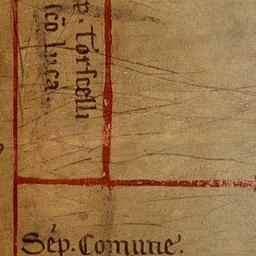 p. Torscelli
ico luca
Sép. Comune.